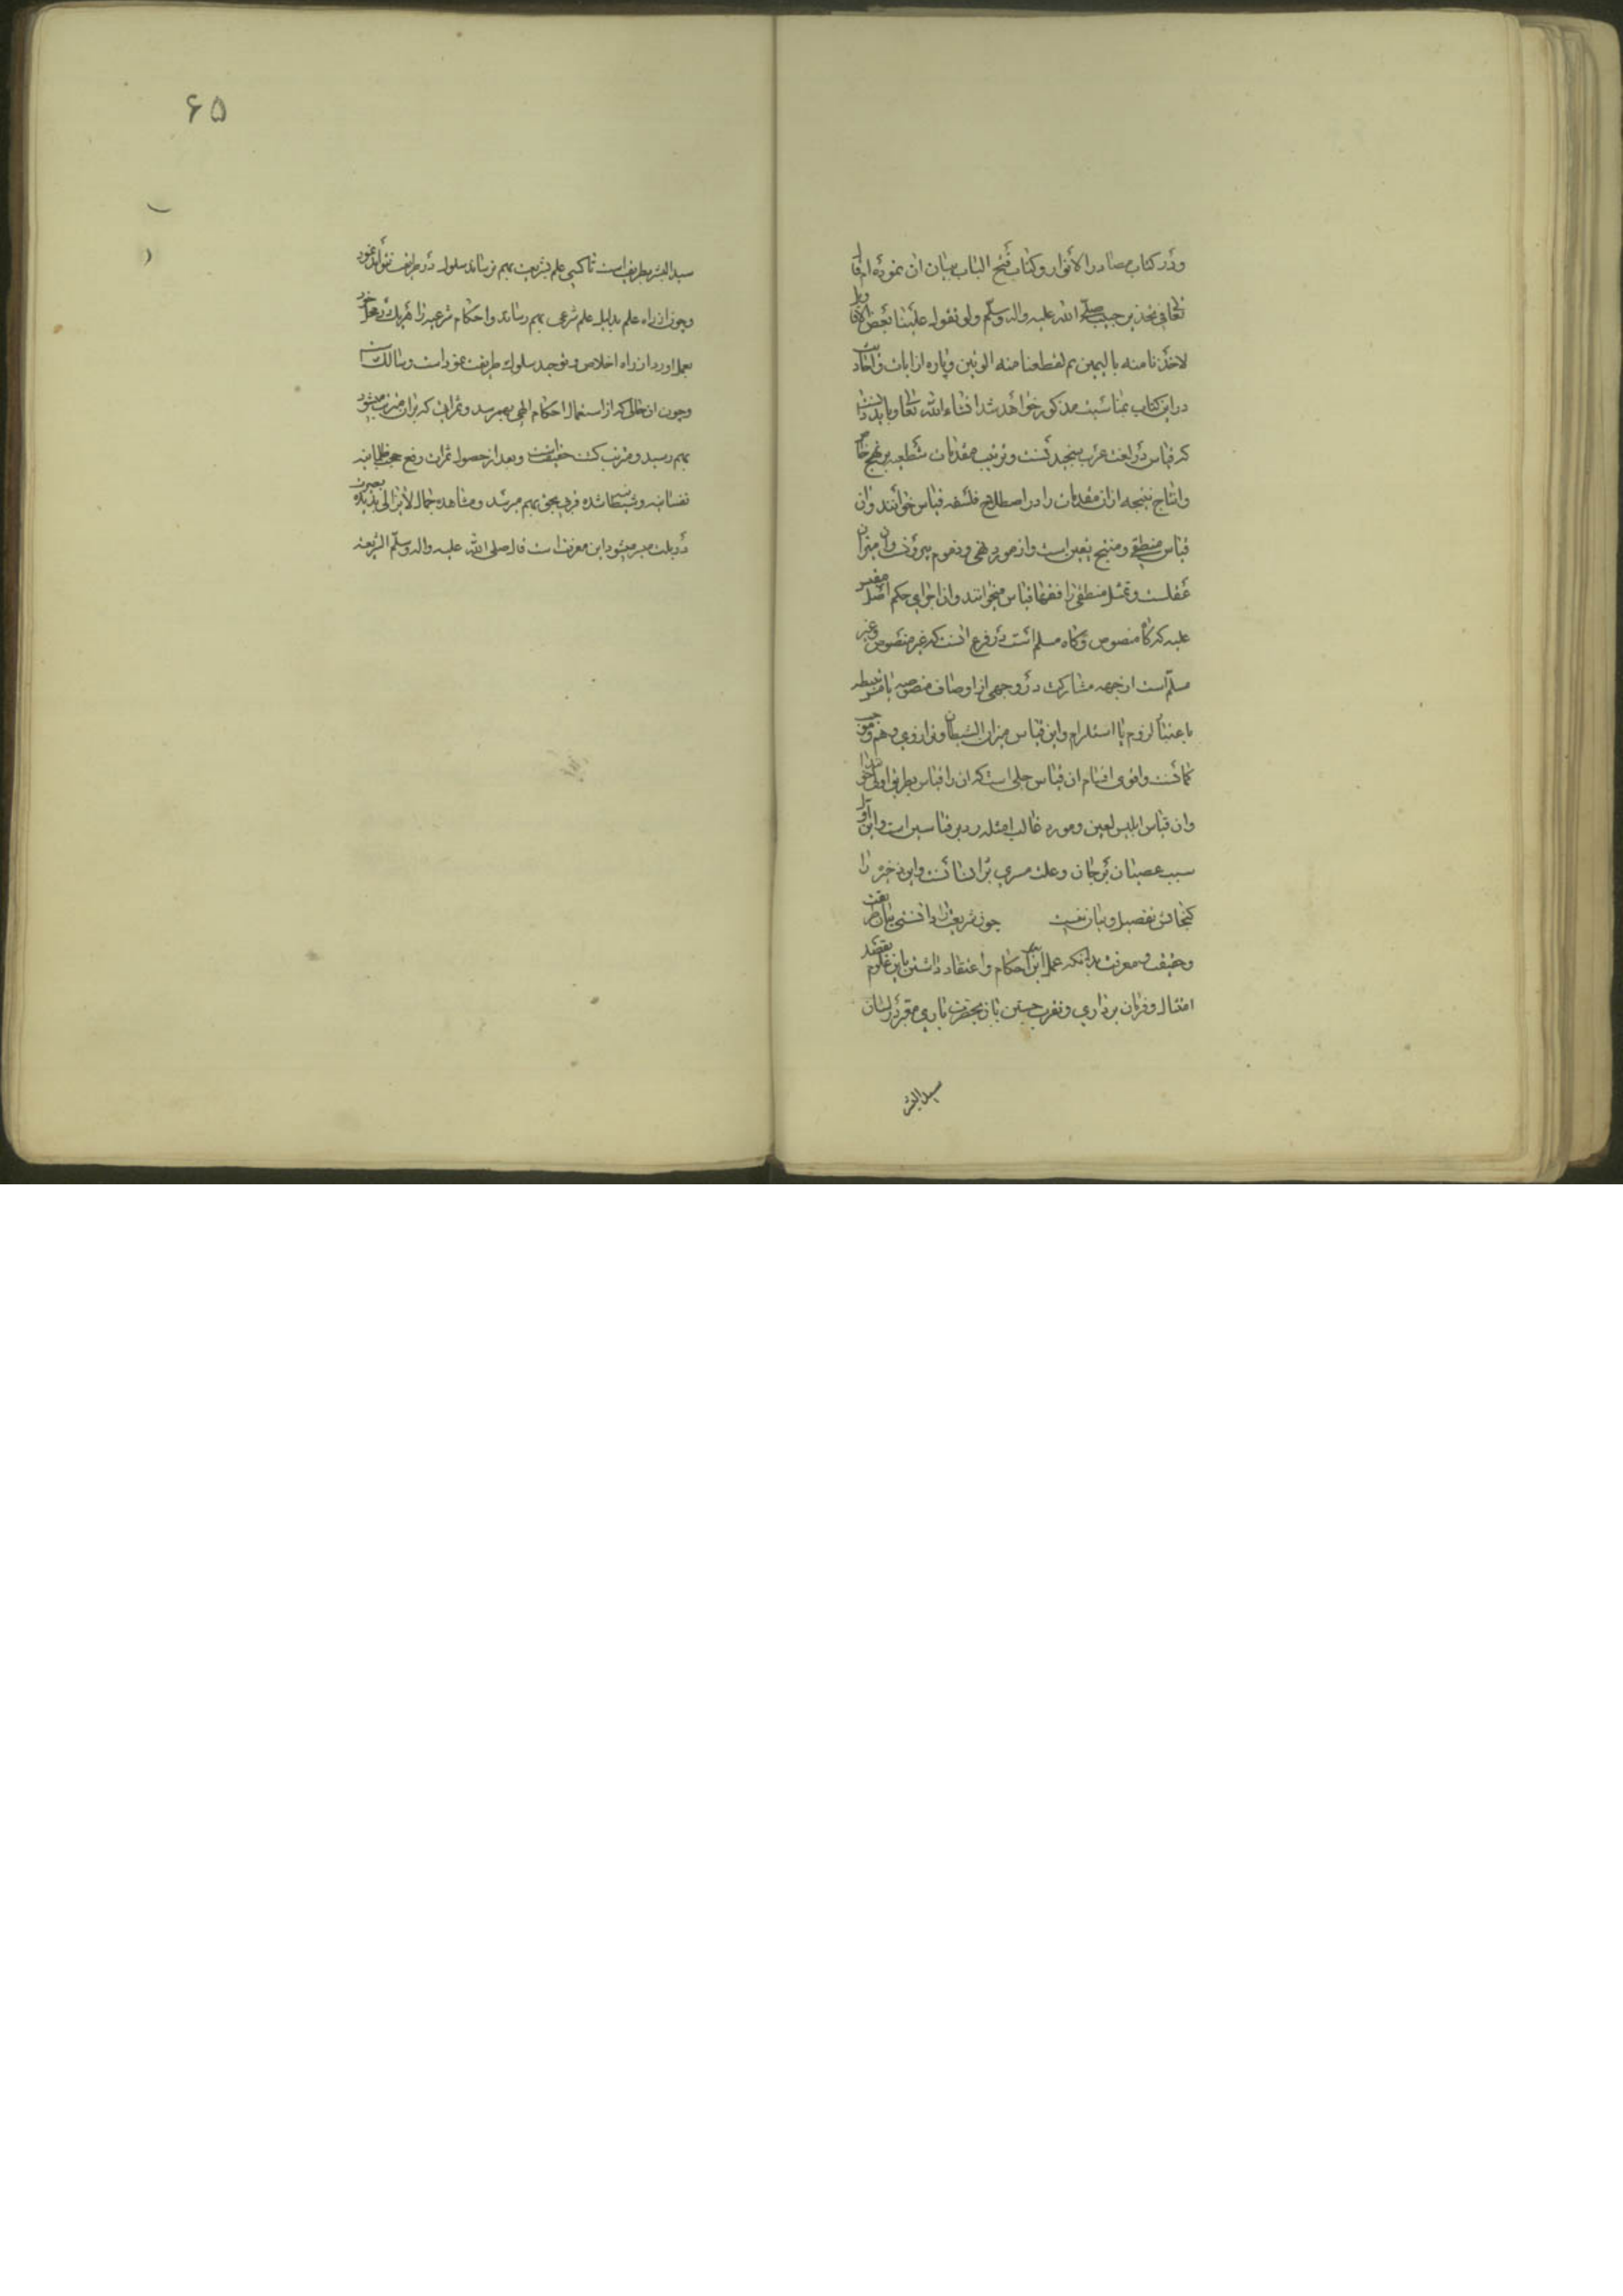 ودر کتاب مصادر الأنوار وکتاب فتح الباب بیان ان نموده ام قال
تعالی فی تحذیر حبیبه صلی الله علیه واله وسلم ولو تقول علینا بعض الاقاویل
لاخذنا منه بالیمین ثم لقطعنا منه الوتین وپاره از ایات واخبار
در این کتاب بمناسبت مذکور خواهد شد انشاء الله تعالی وباید دانست
که قیاس در لغت عرب سنجیدنست وترتیب مقدمات قطعیه بر نهج خاص
وانتاج نتیجه از ان مقدمات را در اصطلاح فلسفه قیاس خوانند وان
قیاس منطقی ومنتج یقین است واز مورد نهی ومذموم بیرون وان میزان
عقلست وتمثیل منطقی را فقها قیاس میخوانند وان اجرای حکم اصل مقیس
علیه که گاه منصوص وگاه مسلم است در فرع انست که غیر منصوص وغیر
مسلم است از جهه مشارکت در وجهی از اوصاف منصوصه یا مستنبطه
باعتبار لزوم یا استلرام واین قیاس میزان الشیطان وترازوی وهم وموجب
گمانست واقوی اقسام ان قیاس جلی است که ان را قیاس بطریق اولی خوانند
وان قیاس ابلیس لعین ومورد غالب امثله رد بر قیاسین است واین
سبب عصیان بر جان وعلت مسری بر انسانست واین ذخیره را
گنجایش تفصیل وبیان نیست چون شریعت را دانستی بیان طریقت
وحقیقت ومعرفت بدانکه عمل باین احکام واعتقاد داشتن باین علوم بقصد
امتثال وفرمان برداری وتقرب جستن بان بحضرت باری مقرر در لسان
سید البشر
۶۵
سید البشر بطریقت است تا کسی علم شریعت بهم نرساند سلوک در طریقت نتواند نمود
وچون از راه علم بدلیل علم شرعی بهم رساند واحکام شرعیه را هر یک در محل خود
بعمل اورد از راه اخلاص وتوحید سلوک طریقت نموده است وسالک است
وچون ان حالی که از استعمال احکام الهی بهم رسد وثمراتی که بران مترتب میشود
بهم رسید ومترتب گشت حقیقت است وبعد از حصول ثمرات ورفع حجب ظلمانیه
نفسانیه وشیطانیه شده قرب بحق بهم میرسد ومشاهده جمال لایزالی بدیده بصیرت
در دلت میسر میشود این معرفت است قال صلی الله علیه واله وسلم الشریعة